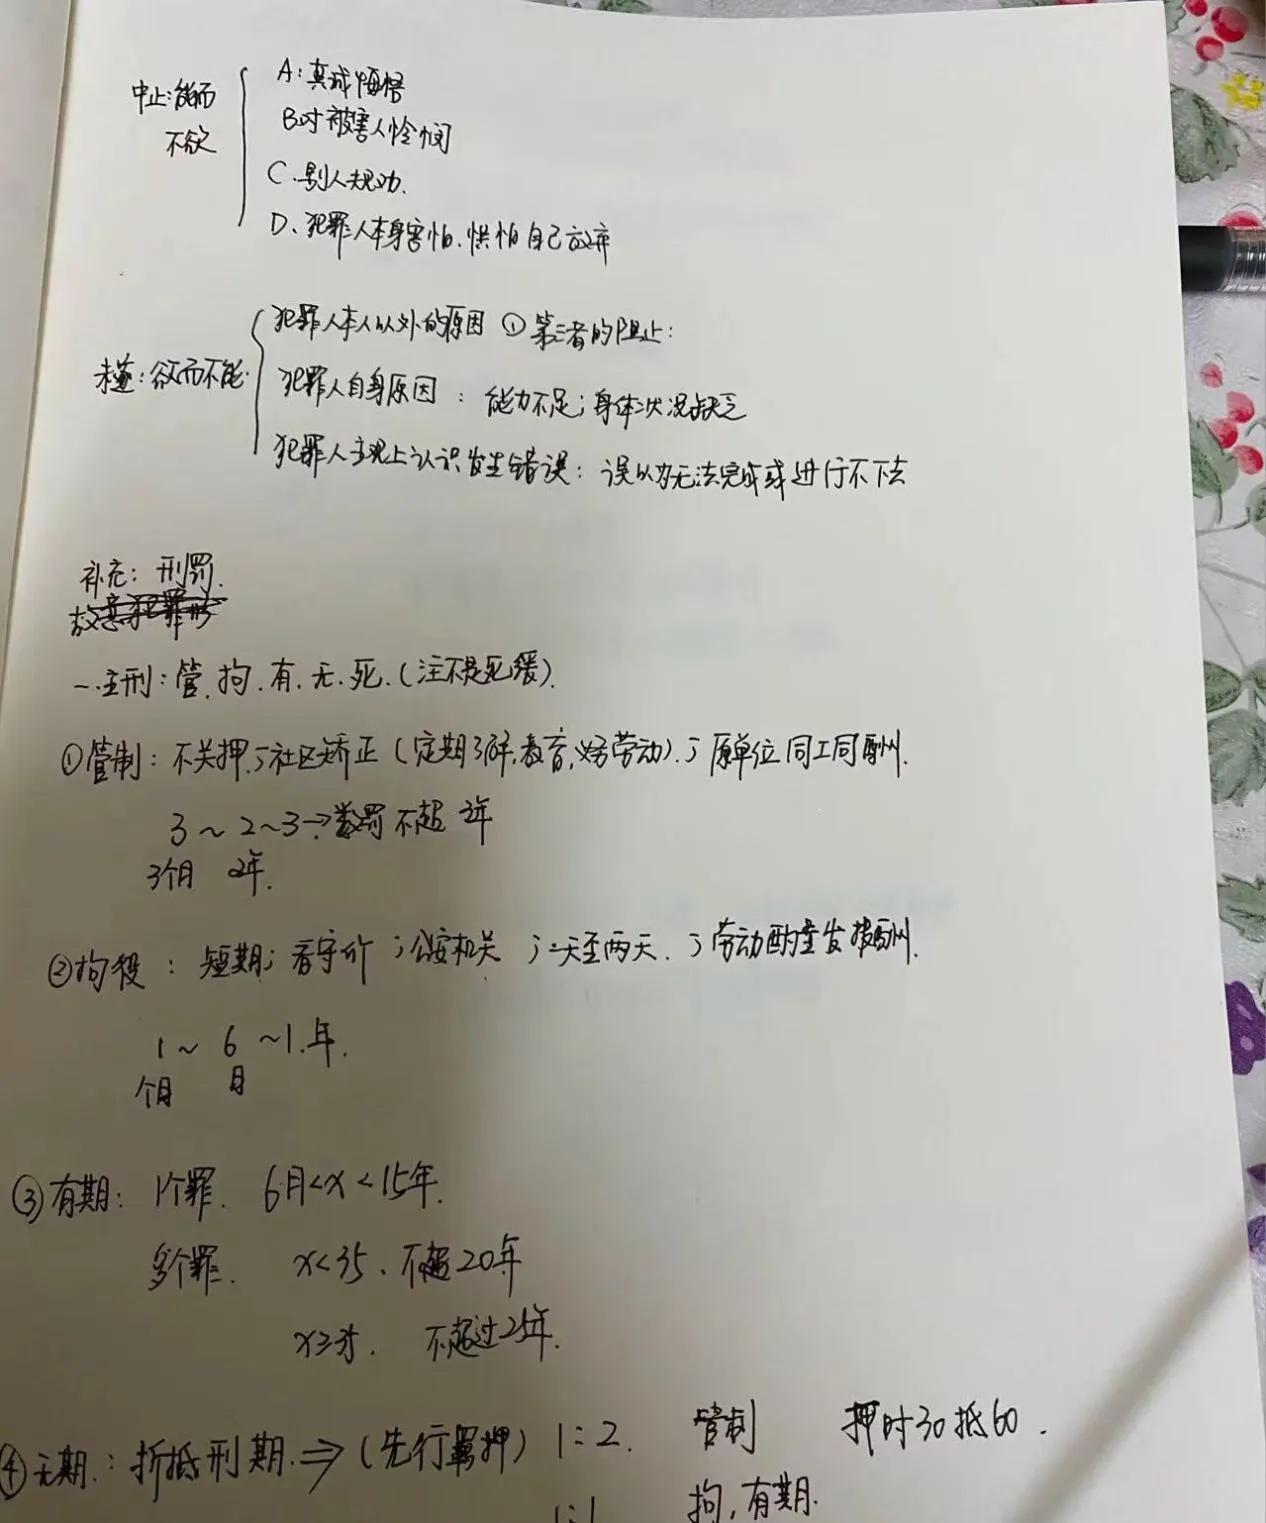 中止:能而
不欲
A:真诚悔悟
B对被害人怜悯
C.别人规劝.
D、犯罪人本身害怕.惧怕自己放弃
未遂:欲而不能.
犯罪人本人以外的原因 ①第三者的阻止:
犯罪人自身原因:能力不足;身体状况缺乏
犯罪人主观上认识发生错误:误以为无法完成或进行不下去
补充:刑罚.
故意犯罪形
一.主刑:管.拘.有.无.死.(注不是死缓).
①管制:不关押;社区矫正(定期了解,教育,劳动).;原单位同工同酬.
3~2~3→数罪不超3年
3个月 2年.
②拘役:短期;看守所;公安机关;一天至两天.;劳动酌量发报酬.
1~6~1.年.
个月 月
③有期:1个罪. 6月<x<15年.
多个罪. x<35、不超20年
x≥35. 不超过25年.
④无期.:折抵刑期.⇒(先行羁押) 1:2. 管制 押时30抵60.
1:1 拘,有期.